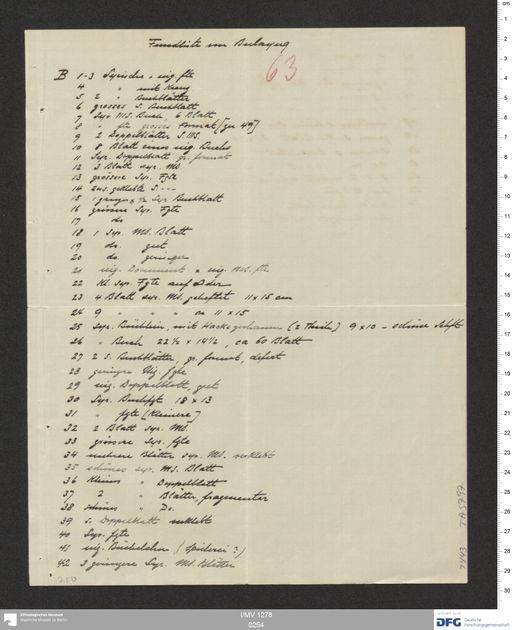 Fundliste von Bulayıq
63
B 1-3 Syrische + uig. fte
4 " " mit Kreuz
5 2 " Buchblätter
6 grosses S. Buchblatt
7 Syr MS. Buch, 6 Blatt
8 " fte grosses Format [zu 49]
9 2 Doppelblätter S. MS.
10 8 Blatt eines uig. Buchs
11 Syr. Doppelblatt gr. format
12 3 Blatt syr. MS
13 grössere Syr. Fgte
14 zus. geklebte S. ---
15 1 ganzes & ½ Syr Buchblatt
16 grössere Syr. Fgte
17 do
18 1 Syr. MS. Blatt
19 do. gut
20 do. geringer
21 uig. Document & uig. MS. fte
22 Kl. Syr. Fgte auf Leder
23 4 Blatt syr. MS. geheftet 11 x 15 cm
24 9 " " " ca 11 x 15
25 Syr. Büchlein, mit Hacke gehauen (2 Theile) 9 x 10 - schöne Schft
26 " Buch 22 ½ x 14 ½, ca 60 Blatt
27 2 S. Buchblätter, gr. format, defect
28 geringere Uig. fgte
29 uig. Doppelblatt, gut
30 Syr. Buchfgte 18 x 13
31 " fgte [kleinere]
32 2 Blatt Syr. MS.
33 grössere Syr. fgte
34 mehrere Blätter syr. MS. verklebt
35 schönes syr. MS. Blatt
36 kleines " Doppelblatt
37 2 " Blätter, fragmentar
38 schönes " Do.
39 S. Doppelblatt verklebt
40 Syr. fgte
41 uig. Büchelchen (Spielerei?)
42 3 geringere Syr. MS. Blätter
TA 5797
I/MV 1278
0254
Ethnologisches Museum
Staatliche Museen zu Berlin
DFG Deutsche
Forschungsgemeinschaft